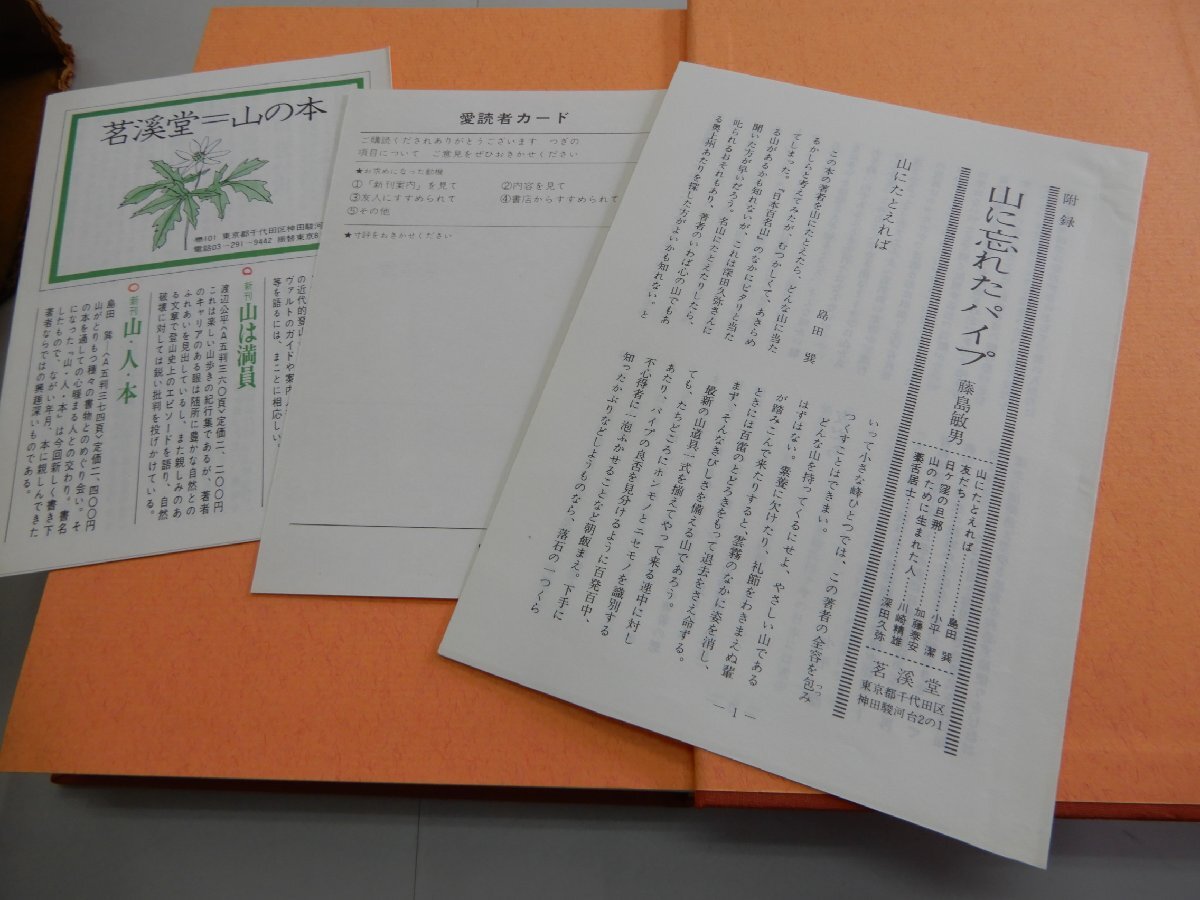 茗溪堂=山の本
〒101 東京都千代田区神田駿河
電話03-291-9442 振替東京8
新刊 山は満員
渡辺公平〈A五判三六〇頁〉定価二、二〇〇円
これは楽しい山歩きの紀行集であるが、著者
のキャリアのある眼は随所に豊かな自然との
ふれあいを見出しているし、また親しみのあ
る文章で登山史上のエピソードを語り、自然
破壊に対しては鋭い批判を投げかけている。
新刊 山・人・本
島田 巽〈A五判三七四頁〉定価二、四〇〇円
山がとりもつ種々の書物とのめぐり会い。そ
の本を通しての心暖まる人との交わり。書名
になった『山・人・本』は今回新しく書き下
したもので、ながい年月、本に親しんできた
著者ならではの興趣深いものである。
の近代的登山
ヴァルトのガイドや案内
等を語るには、まことに相応しい。
愛読者カード
ご購読くだされありがとうございます つぎの
項目について ご意見をぜひおきかせください
★お求めになった動機
①「新刊案内」を見て ②内容を見て
③友人にすすめられて ④書店からすすめられて
⑤その他
★寸評をおきかせください
附録
山に忘れたパイプ 藤島敏男
山にたとえれば……島田 巽
友だち……小平 潔
日ヶ窪の旦那……加藤泰安
山のために生まれた人……川崎精雄
藁舌居士……深田久弥
茗溪堂
東京都千代田区
神田駿河台2の1
山にたとえれば
島田 巽
この本の著者を山にたとえたら、どんな山に当た
るかしらと考えてみたが、むつかしくて、あきらめ
てしまった。『日本百名山』のなかにピタリと当た
る山があるかも知れないが、これは深田久弥さんに
聞いた方が早いだろう。名山にたとえたりしたら、
叱られるおそれもあり、著者のいわば心の山でもあ
る奥上州あたりを探した方がよいかも知れない。と
いって小さな峰ひとつでは、この著者の全容を包み
つくすことはできまい。
どんな山を持ってくるにせよ、やさしい山である
はずはない。素養に欠けたり、礼節をわきまえぬ輩
が踏みこんで来たりすると、雲霧のなかに姿を消し、
ときには百雷のとどろきをもって退去をさえ命ずる。
まず、そんなきびしさを備える山であろう。
最新の山道具一式を揃えてやって来る連中に対し
ても、たちどころにホンモノとニセモノを識別する
あたり、パイプの良否を見分けるように百発百中、
不心得者に一泡ふかせることなど朝飯まえ。下手に
知ったかぶりなどしようものなら、落石の一つくら
— 1 —